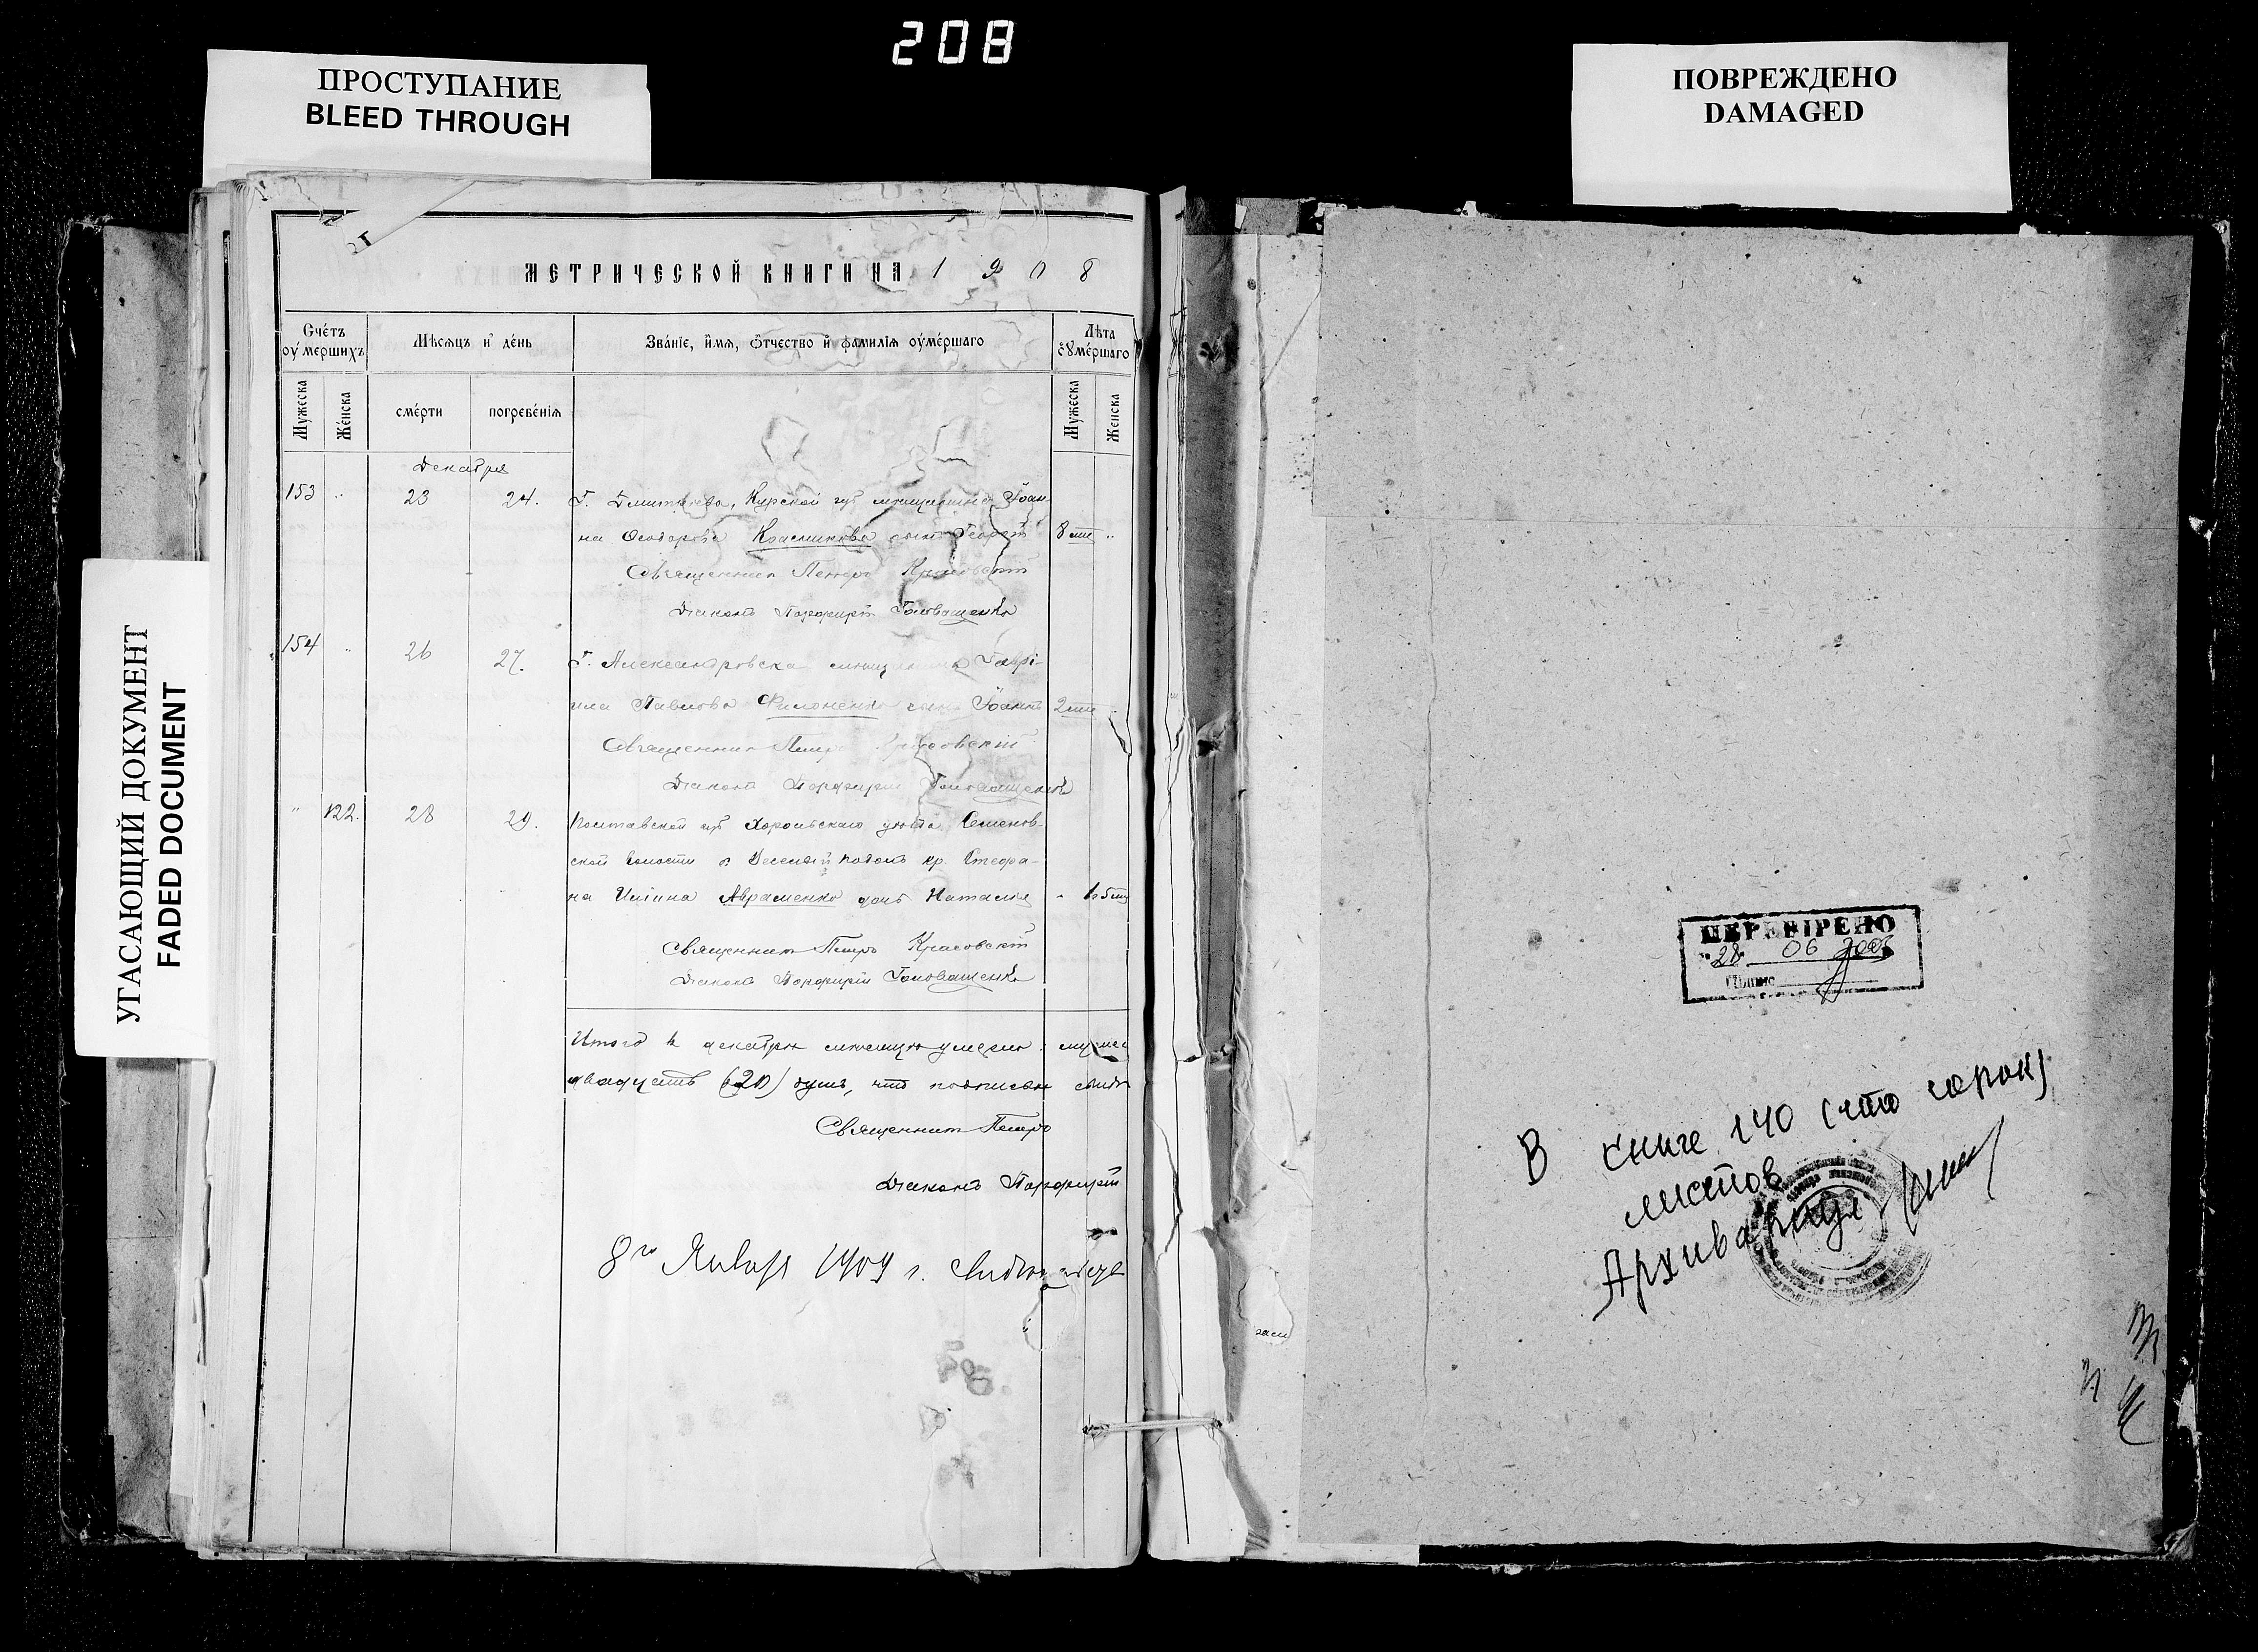 208
ПРОСТУПАНИЕ
BLEED THROUGH
ПОВРЕЖДЕНО
DAMAGED
УГАСАЮЩИЙ ДОКУМЕНТ
FADED DOCUMENT
МЕТРИЧЕСКОЙ КНИГИ НА 1908
Счéтъ оу҆мéршихъ
Мѣсяцъ и҆ дéнь
Звáнїе, и҆́мя, ѻ҆́тчество и҆ фамилїя оу҆мéршаго
Лѣта оу҆мéршаго
Мужеска
Жéнска
смéрти
погребéнїя
Мужеска
Женска
Декабря
153 " 23 24. Г. Дмитріева, Курской губ мѣщанина Іоан-
на Ѳеодорова Красникова сынъ Георгій 8 мѣс "
Священникъ Петръ Красовскій
Діаконъ Порфирій Головашенко
154 " 26 27. Г. Александровска мѣщанина Гаврі-
ила Павлова Филоненко сынъ Іоаннъ 2 мѣс
Священникъ Петръ Красовскій
Діаконъ Порфирій Головашенко
" 122. 28 29. Полтавской губ Хорольскаго уѣзда Семенов-
ской волости кр. Стефа-
на Иліина Авраменко дочь Наталія
Священникъ Петръ Красовскій
Діаконъ Порфирій Головашенко
Итого въ декабрѣ мѣсяцѣ умерло
двадцать (20) душъ, что подписью
Священникъ Петръ
Діаконъ Порфирій
8го Января 1909 г.
ПЕРЕВІРЕНО
28 06 2005
В книге 140 (сто сорок)
листов
Архива